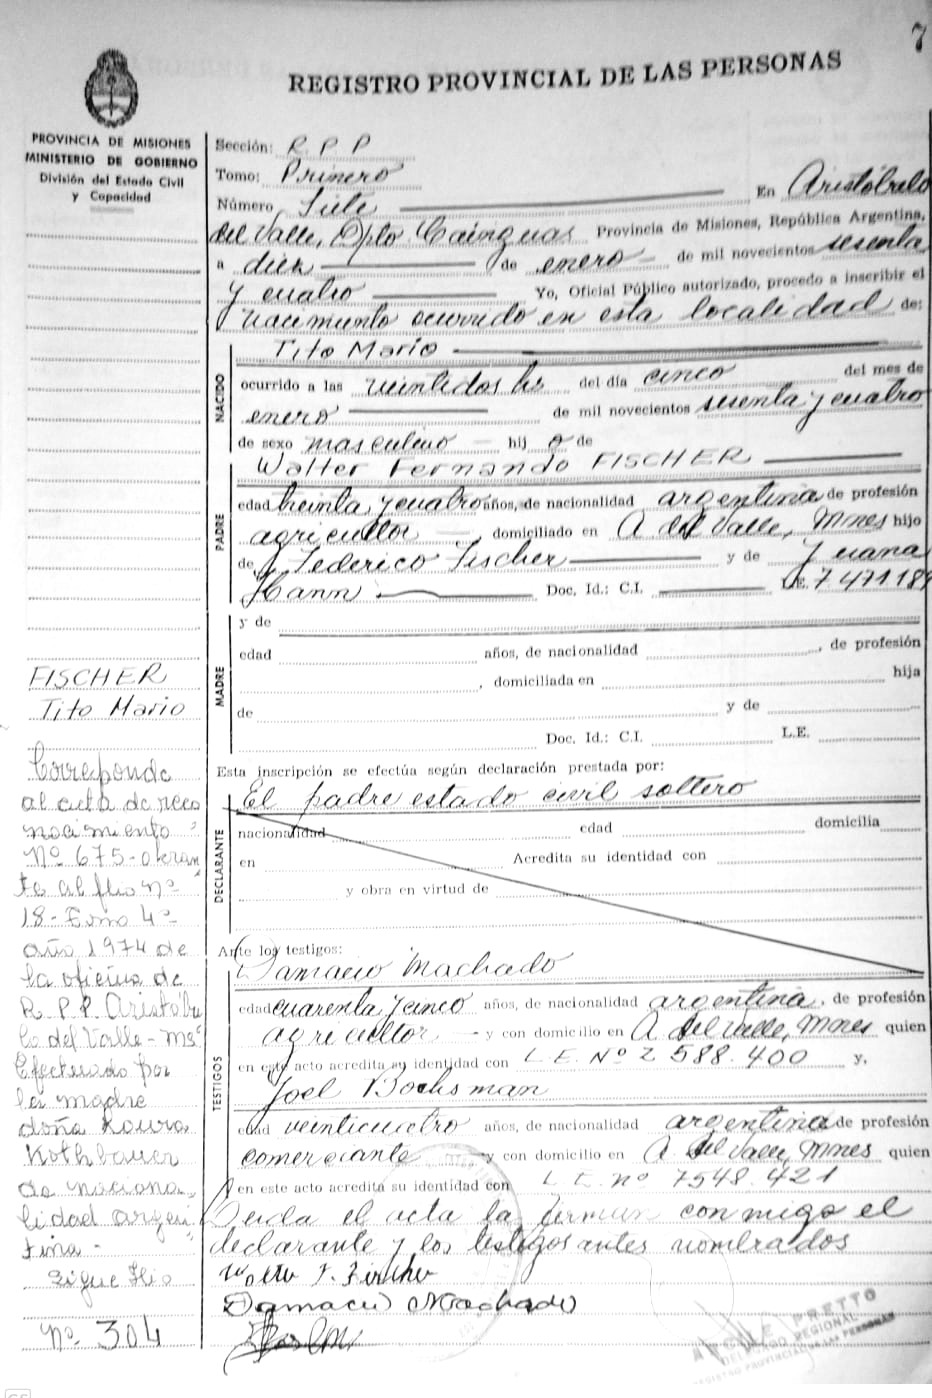 7
REGISTRO PROVINCIAL DE LAS PERSONAS
PROVINCIA DE MISIONES
MINISTERIO DE GOBIERNO
División del Estado Civil
y Capacidad
Sección: R. P. P
Tomo: Primero
Número Siete En Aristóbulo
del Valle, Dpto Cainguas Provincia de Misiones, República Argentina,
a diez de enero de mil novecientos sesenta
y cuatro Yo, Oficial Público autorizado, procedo a inscribir el
nacimiento ocurrido en esta localidad de:
NACIDO
Tito Mario
ocurrido a las veintidos hs del día cinco del mes de
enero de mil novecientos sesenta y cuatro
de sexo masculino hij o de
PADRE
Walter Fernando FISCHER
edad treinta y cuatro años, de nacionalidad argentina de profesión
agricultor, domiciliado en A. del Valle, Mnes hijo
de Federico Fischer y de Juana
Hann Doc. Id.: C.I. L.E. 7.471.189
MADRE
y de
edad años, de nacionalidad , de profesión
, domiciliada en hija
de y de
Doc. Id.: C.I. L.E.
Esta inscripción se efectúa según declaración prestada por:
DECLARANTE
El padre estado civil soltero
nacionalidad edad domicilia
en Acredita su identidad con
y obra en virtud de
Ante los testigos:
TESTIGOS
Damacio Machado
edad cuarenta y cinco años, de nacionalidad argentina, de profesión
agricultor y con domicilio en A. del Valle, Mnes quien
en este acto acredita su identidad con L.E. Nº 2 588.400 y,
Joel Bochsman
edad veinticuatro años, de nacionalidad argentina de profesión
comerciante y con domicilio en A. del Valle, Mnes quien
en este acto acredita su identidad con L.E. nº 7548.421
Leida el acta la firman conmigo el
declarante y los testigos antes nombrados
Walter F. Fischer
Damacio Machado
FISCHER
Tito Mario
Corresponde
al acta de reco
nocimiento
Nº 675-obran
te al flio nº
18-Tomo 4º
año 1974 de
la oficina de
R.P.P. Aristóbu
lo del Valle-Ms
Efectuado por
la madre
doña Laura
Kothbauer
de naciona
lidad argen
tina-
Sigue flio
Nº 304
PRETTO
DELEGADO REGIONAL
REGISTRO PROVINCIAL DE LAS PERSONAS